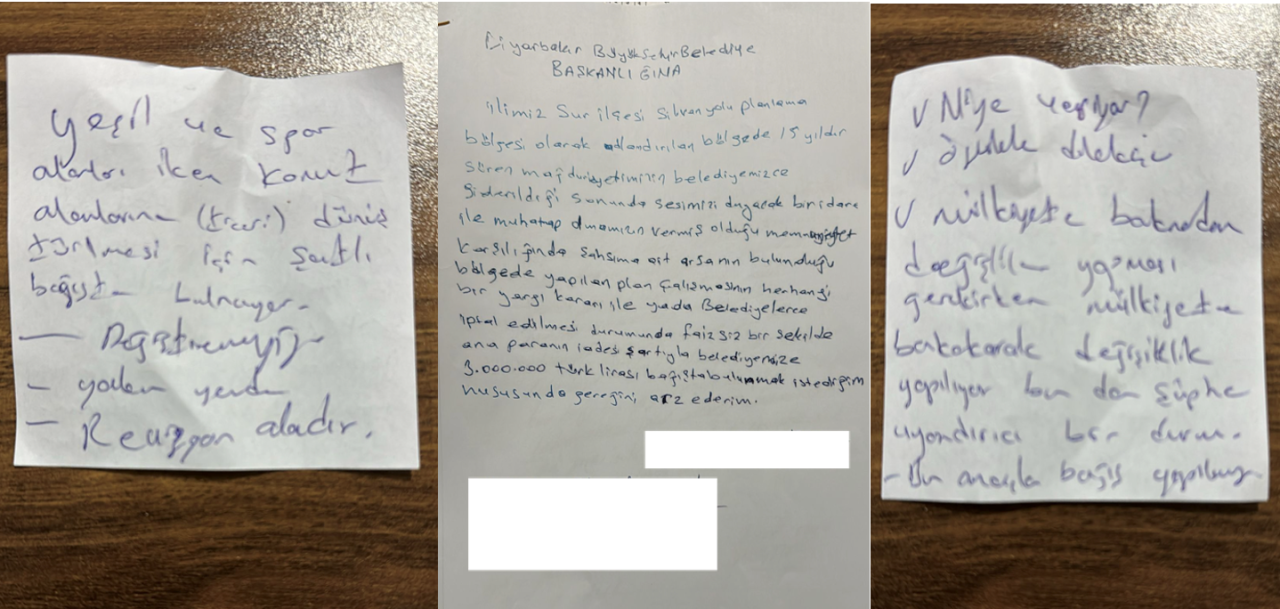 yeşil ve spor
alanları iken konut
alanlarına (ticari) dönüş
türülmesi için şartlı
bağışta bulunuyor.
—
- yalan
- Revizyon aladır.
Diyarbakır Büyükşehir Belediye
BAŞKANLIĞINA
ilimiz Sur ilçesi Silvanyolu planlama
bölgesi olarak adlandırılan bölgede 15 yıldır
süren mağduriyetimizin belediyemizce
giderildiği sonunda sesimizi duyacak bir idare
ile muhatap olmamızın vermiş olduğu memnuniyet
karşılığında şahsıma ait arsanın bulunduğu
bölgede yapılan plan çalışmasının herhangi
bir yargı kararı ile yada Belediyelerce
iptal edilmesi durumunda faizsiz bir şekilde
ana paranın iadesi şartıyla belediyenize
3.000.000 türk lirası bağışta bulunmak istediğim
hususunda gereğini arz ederim.
✓ Niye
✓ dilekçe
✓ mülkiyete bakmadan
değişiklik yapması
gerekirken mülkiyete
bakılarak değişiklik
yapılıyor bu da şüphe
uyandırıcı bir durum.
- Bu amaçla bağış yapılmış